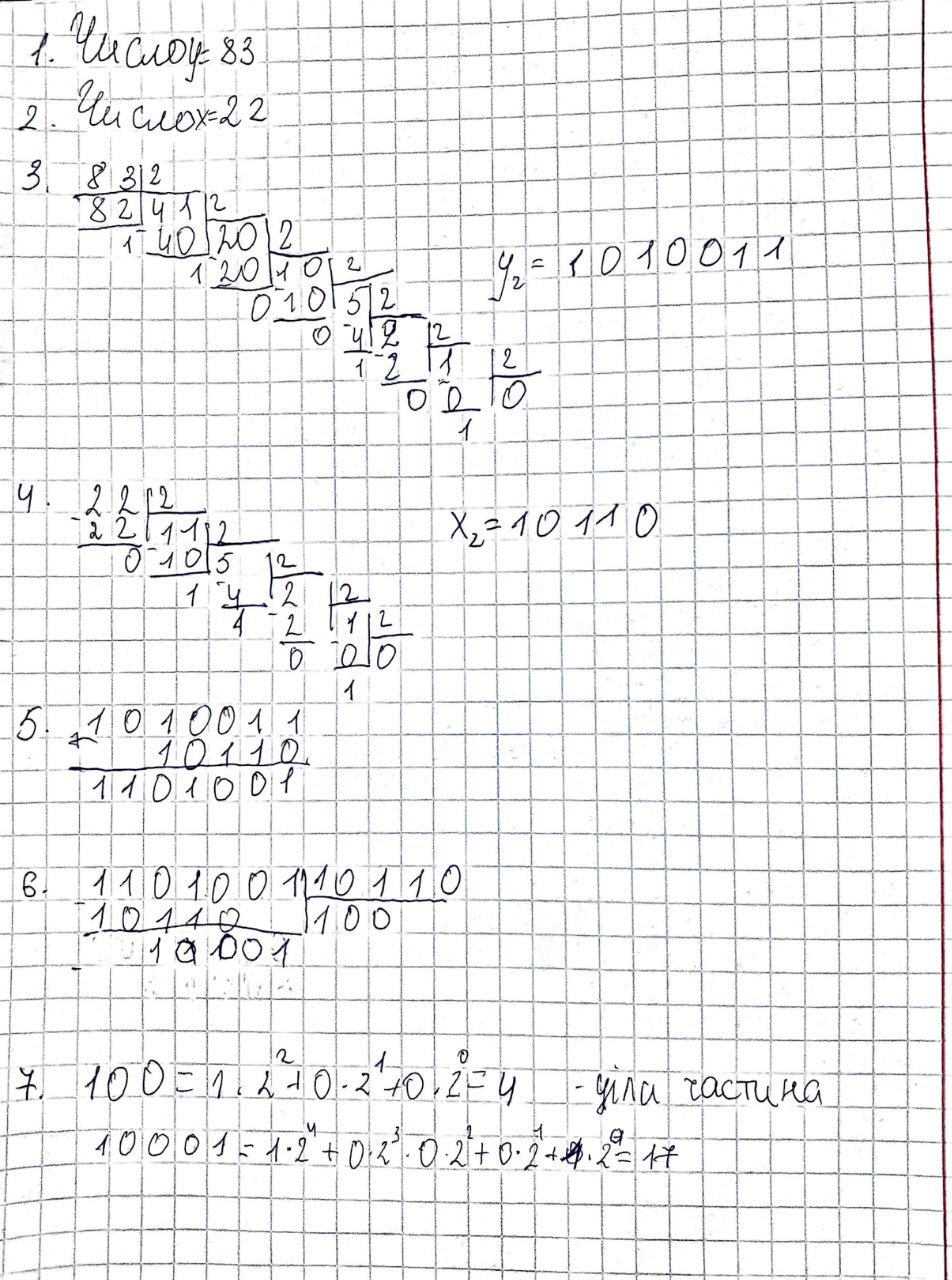 1. Число y=83
2. Число x=22
3. 83|2
82|41|2
1 -40|20|2
1 -20|10|2
0 -10|5|2
0 -4|2|2
1 -2|1|2
0 0 0
1
y₂ = 1010011
4. 22|2
-22|11|2
0 -10|5|2
1 -4|2|2
1 -2|1|2
0 0|0
1
x₂=10110
5. 1010011
+ 10110
1101001
6. 1101001|10110
-10110|100
10001
-
7. 100=1·2²+0·2¹+0·2⁰=4 - ціла частина
10001=1·2⁴+0·2³·0·2²+0·2¹+1·2⁰=17